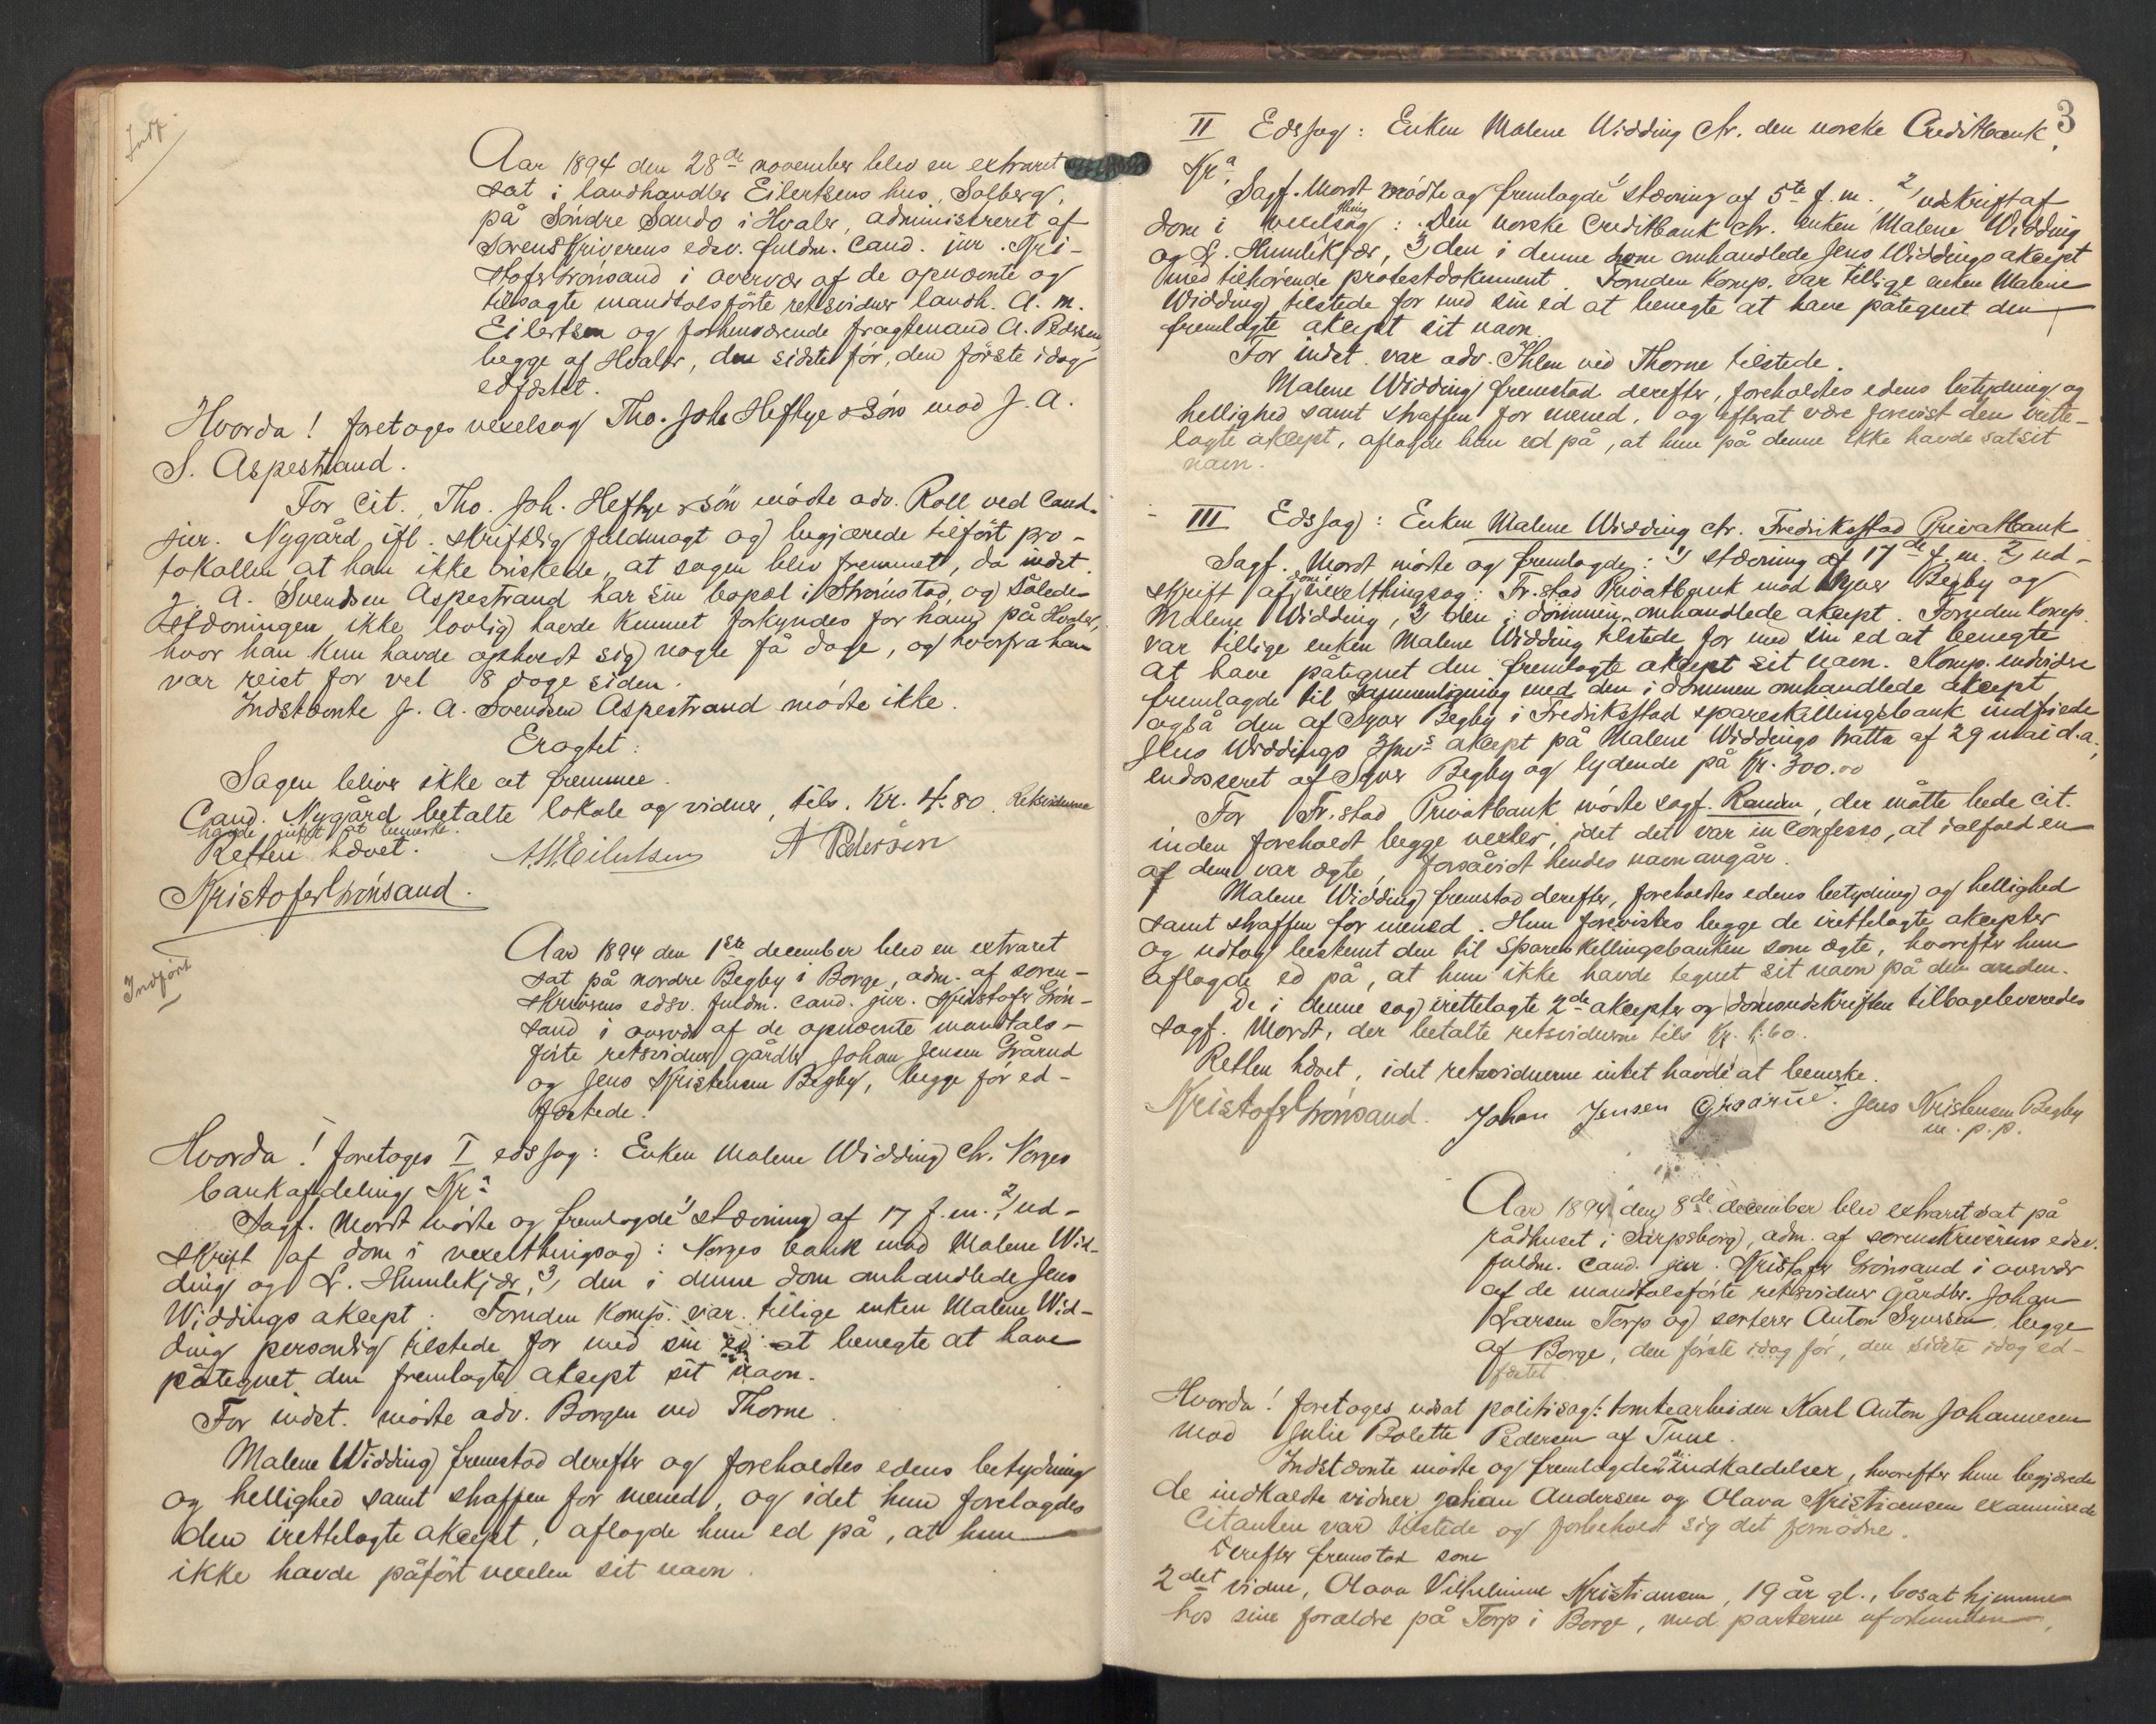 Indf.
Aar 1894 den 28de november blev en extraret
sat i landhandler Eilertsens hus, Solberg,
på Söndre Sandö i Hvaler, administreret af
sorenskriverens edsv. fuldm. cand. jur. Kri-
stofer Grönsand i overvær af de opnævnte og
tilsagte mandtalsförte retsvidner landh. A. M.
Eilertsen og forhenværende fragtemand A. Pedersen,
begge af Hvaler, den sidste för, den förste idag
edfæstet.
Hvorda! foretoges vexelsag Tho. Joh. Heftye & Sön mod J. A.
S. Aspestrand.
For cit., Tho. Joh. Heftye & Sön mödte adv. Roll ved cand.
jur. Nygård ifl. skriftlig fuldmagt og begjærede tilfört pro-
tokollen at han ikke önskede, at sagen blev fremmet, da indst.
J. A. Svendsen Aspestrand har sin bopæl i Strömstad, og således
stævningen ikke lovlig havde kunnet forkyndes for ham på Hvaler,
hvor han kun havde opholdt sig nogle få dage, og hvorfra han
var reist for vel 8 dage siden.
Indstævnte J. A. Svendsen Aspestrand mödte ikke.
Eragtet:
Sagen bliver ikke at fremme.
Cand. Nygård betalte lokale og vidner, tils. Kr. 4.80. Retsvidnerne
havde intet at bemærke.
Retten hævet. A M Eilertsen A Pedersen
Kristofer Grönsand.
Indfört
Aar 1894 den 1ste december blev en extraret
sat på nordre Begby i Borge, adm. af soren-
skriverens edsv. fuldm. cand. jur. Kristofer Grön-
sand i overvær af de opnævnte mandtals-
förte retsvidner gårdbr. Johan Jensen Grårud
og Jens Kristensen Begby, begge för ed-
fæstede.
Hvorda! foretoges I edssag: Enken Malene Widding ctr. Norges
bankafdeling Kr.a
Sagf. Mordt mödte og fremlagde 1) stævning af 17 f.m. 2) ud-
skrift af dom i vexelthingsag: Norges bank mod Malene Wid-
ding og L. Humlekjær, 3) den i denne dom omhandlede Jens
Widdings akcept. Foruden komp. var tillige enken Malene Wid-
ding personlig tilstede for med sin ed at benegte at have
påtegnet den fremlagte akcept sit navn.
For indst. mödte adv. Borgen ved Thorne.
Malene Widding fremstod derefter og foreholdtes edens betydning
og hellighed samt straffen for mened, og idet hun forelagdes
den irettelagte akcept, aflagde hun ed på, at hun
ikke havde påfört vexelen sit navn.
3
II Edssag: Enken Malene Widding ctr. den norske Creditbank,
Kr.a
Sagf. Mordt mödte og fremlagde 1) stævning af 5te f.m., 2) udskrift af
dom i vexelthingsag: Den norske Creditbank ctr. enken Malene Widding
og L. Humlekjær, 3) den i denne dom omhandlede Jens Widdings akcept
med tilhörende protestdokument. Foruden komp. var tillige enken Malene
Widding tilstede for med sin ed at benegte at have påtegnet den
fremlagte akcept sit navn.
For indst. var adv. Ihlen ved Thorne tilstede.
Malene Widding fremstod derefter, foreholdtes edens betydning og
hellighed samt straffen for mened, og efter at være forevist den irette-
lagte akcept, aflagde hun ed på, at hun på denne ikke havde sat sit
navn.
III Edssag: Enken Malene Widding ctr. Fredriksstad Privatbank
Sagf. Mordt mödte og fremlagde: 1) stævning af 17de f.m. 2) ud-
skrift af dom i vexelthingsag: Fr.stad Privatbank mod Syver Begby og
Malene Widding, 3 den i dommen omhandlede akcept. Foruden komp.
var tillige enken Malene Widding tilstede for med sin ed at benegte
at have påtegnet den fremlagte akcept sit navn. Komp. endvidere
fremlagde til sammenligning med den i dommen omhandlede akcept
også den af Syver Begby i Fredriksstad spareskillingsbank indfriede
Jens Widdings 3/m.s akcept på Malene Widdings tratta af 29 mai d.a.,
endosseret af Syver Begby og lydende på Kr. 300.00
For Fr.stad Privatbank mödte sagf. Ramm, der måtte bede cit.
inden foreholdt begge vexler, idet det var in confesso, at ialfald en
af dem var ægte, forsåvidt hendes navn angår.
Malene Widding fremstod derefter, foreholdtes edens betydning og hellighed
samt straffen for mened. Hun forevistes begge de irettelagte akcepter
og udtog bestemt den til spareskillingsbanken som ægte, hvorefter hun
aflagde ed på, at hun ikke havde tegnet sit navn på den anden.
De i denne sag irettelagte 2de akcepter og domsudskriften tilbageleveredes
sagf. Mordt, der betalte retsvidnerne tils Kr. 1.60.
Retten hævet, idet retsvidnerne intet havde at bemærke.
Kristofer Grönsand. Johan Jensen Graarud. Jens Kristensen Begby
m. p. p.
Aar 1894 den 8de december blev extraret sat på
rådhuset i Sarpsborg, adm. af sorenskriverens edsv.
fuldm. cand. jur. Kristofer Grönsand i overvær
af de mandtalsförte retsvidner gårdbr. Johan
Larsen Torp og sorterer Anton Syversen begge
af Borge, den förste idag för, den sidste idag ed-
fæstet
Hvorda! foretoges udsat politisag: tomtearbeider Karl Anton Johannesen
mod Julie Bolette Pedersen af Tune.
Indstævnte mödte og fremlagde 2de indkaldelser, hvorefter hun begjærede
de indkaldte vidner Johan Andersen og Olava Kristiansen examinerede
Citanten var tilstede og forbeholdt sig det fornödne.
Derefter fremstod som
2det vidne, Olava Vilhelmine Kristiansen, 19 år gl., bosat hjemme
hos sine forældre på Torp i Borge, med parterne uforbunden,